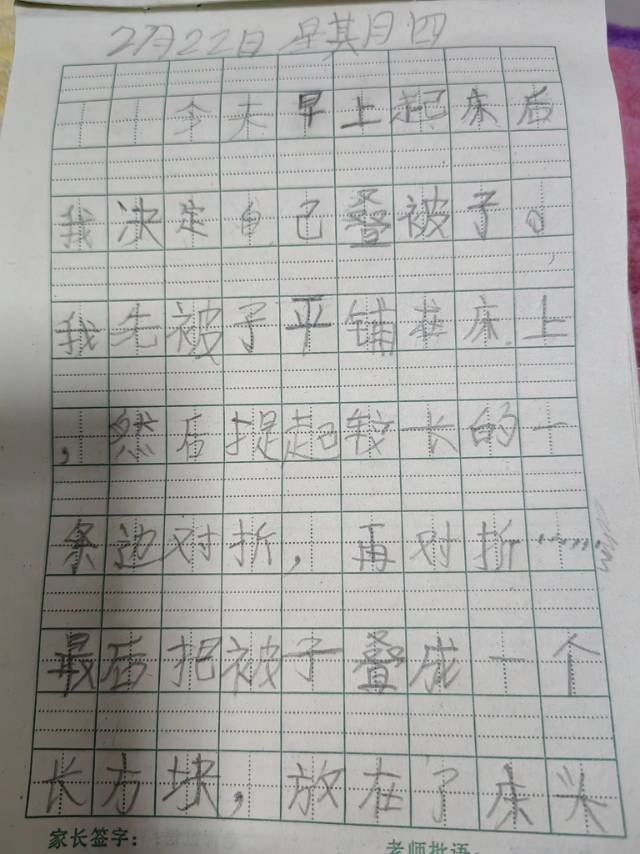 2月22日 星其月四
今天早上起床后
我决定自己叠被子。
我先被子平铺在床上
，然后提起较长的一
条边对折，再对折……
最后把被子叠成一个
长方块，放在了床头
家长签字： 老师批语：